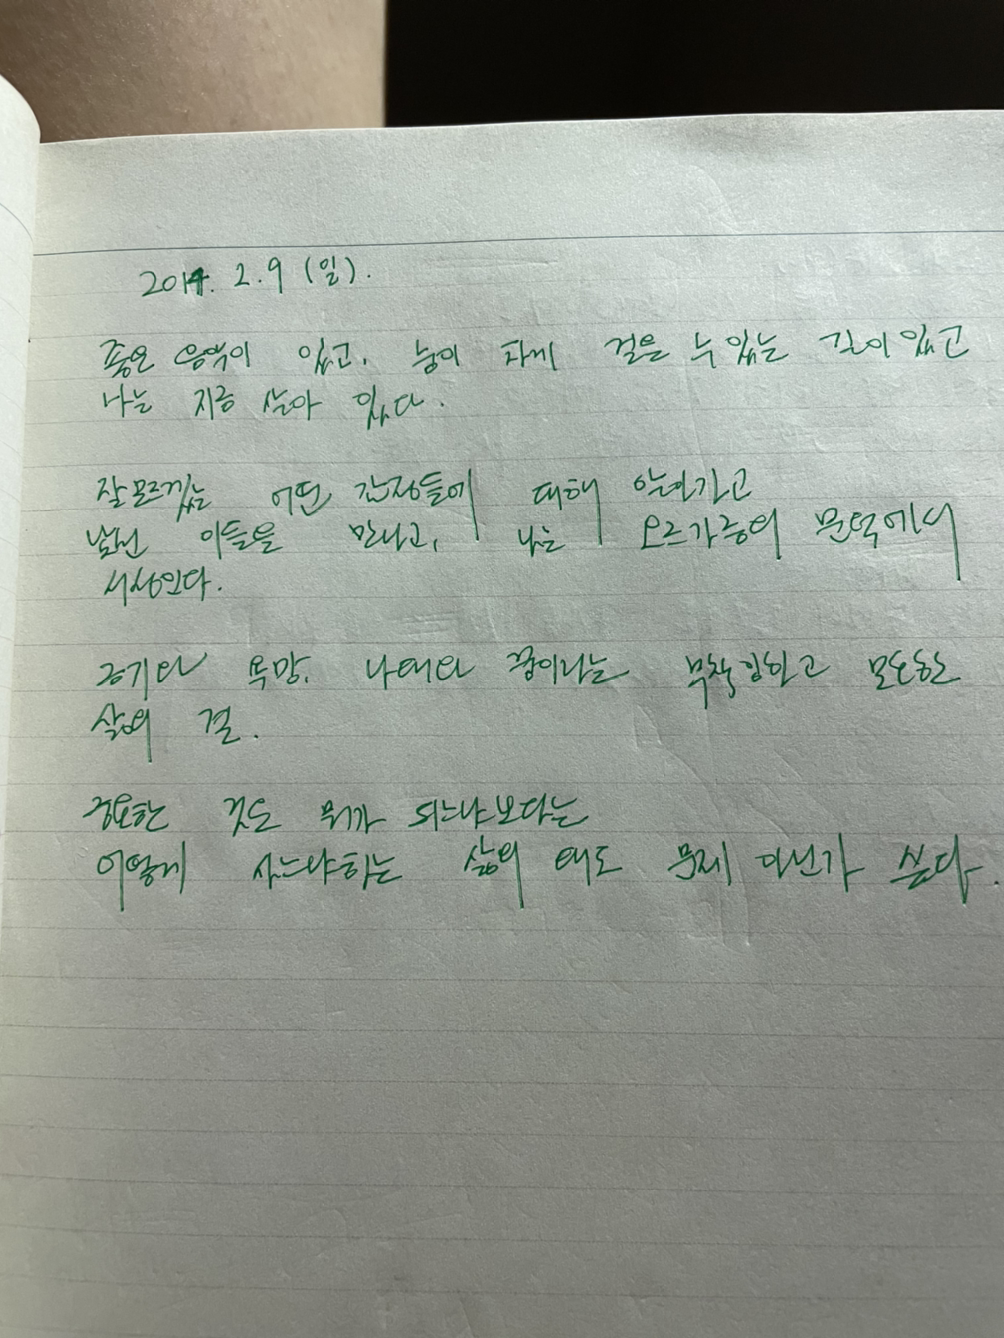 2014. 2.9 (일).
좋은 음악이 있고, 숨이 차게 걸을 수 있는 길이 있고
나는 지금 살아 있다.
잘 모르겠는 어떤 감정들에 대해 알아가고
낯선 이들을 만나고, 나는 오르가즘의 문턱에서
서성인다.
욕망. 나태와 꿈이라는 무책임하고 모호한
삶의 결.
중요한 것도 뭐가 되느냐보다는
어떻게 사느냐하는 삶의 태도 문제 아닌가 싶다.